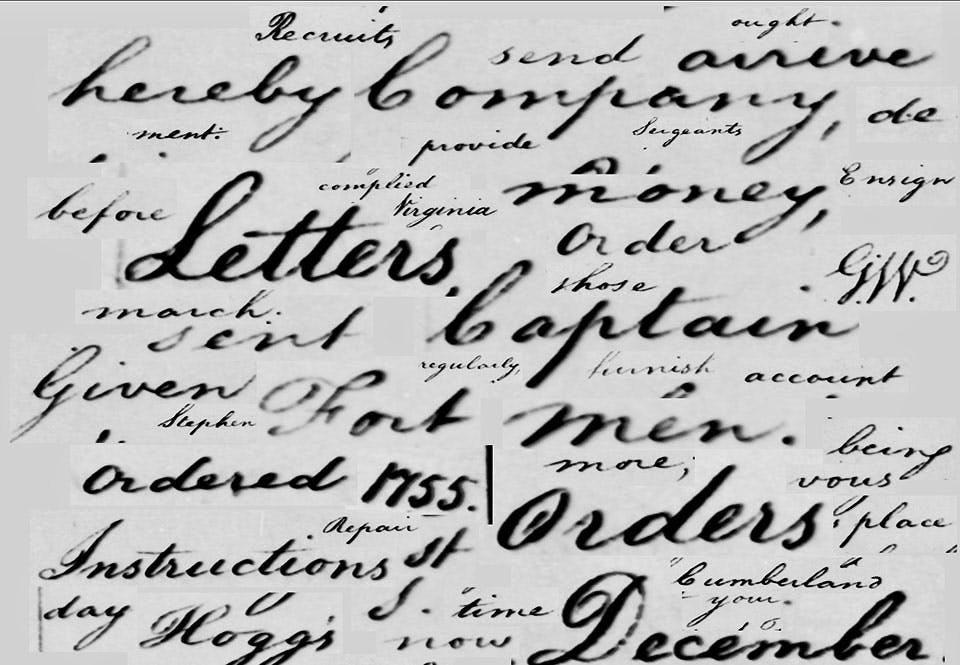 Recruits ought.
hereby Company, send arrive de
ment: provide Sergeants
before complied money, Ensign
Letters, Virginia Order G.W.
those
march. sent Captain
regularly, furnish account
Given Fort men.
Stephen being
Ordered 1755. more, vous
Orders: place
Repair
Instructions St Cumberland
your.
day Hogg's I. "time December
now